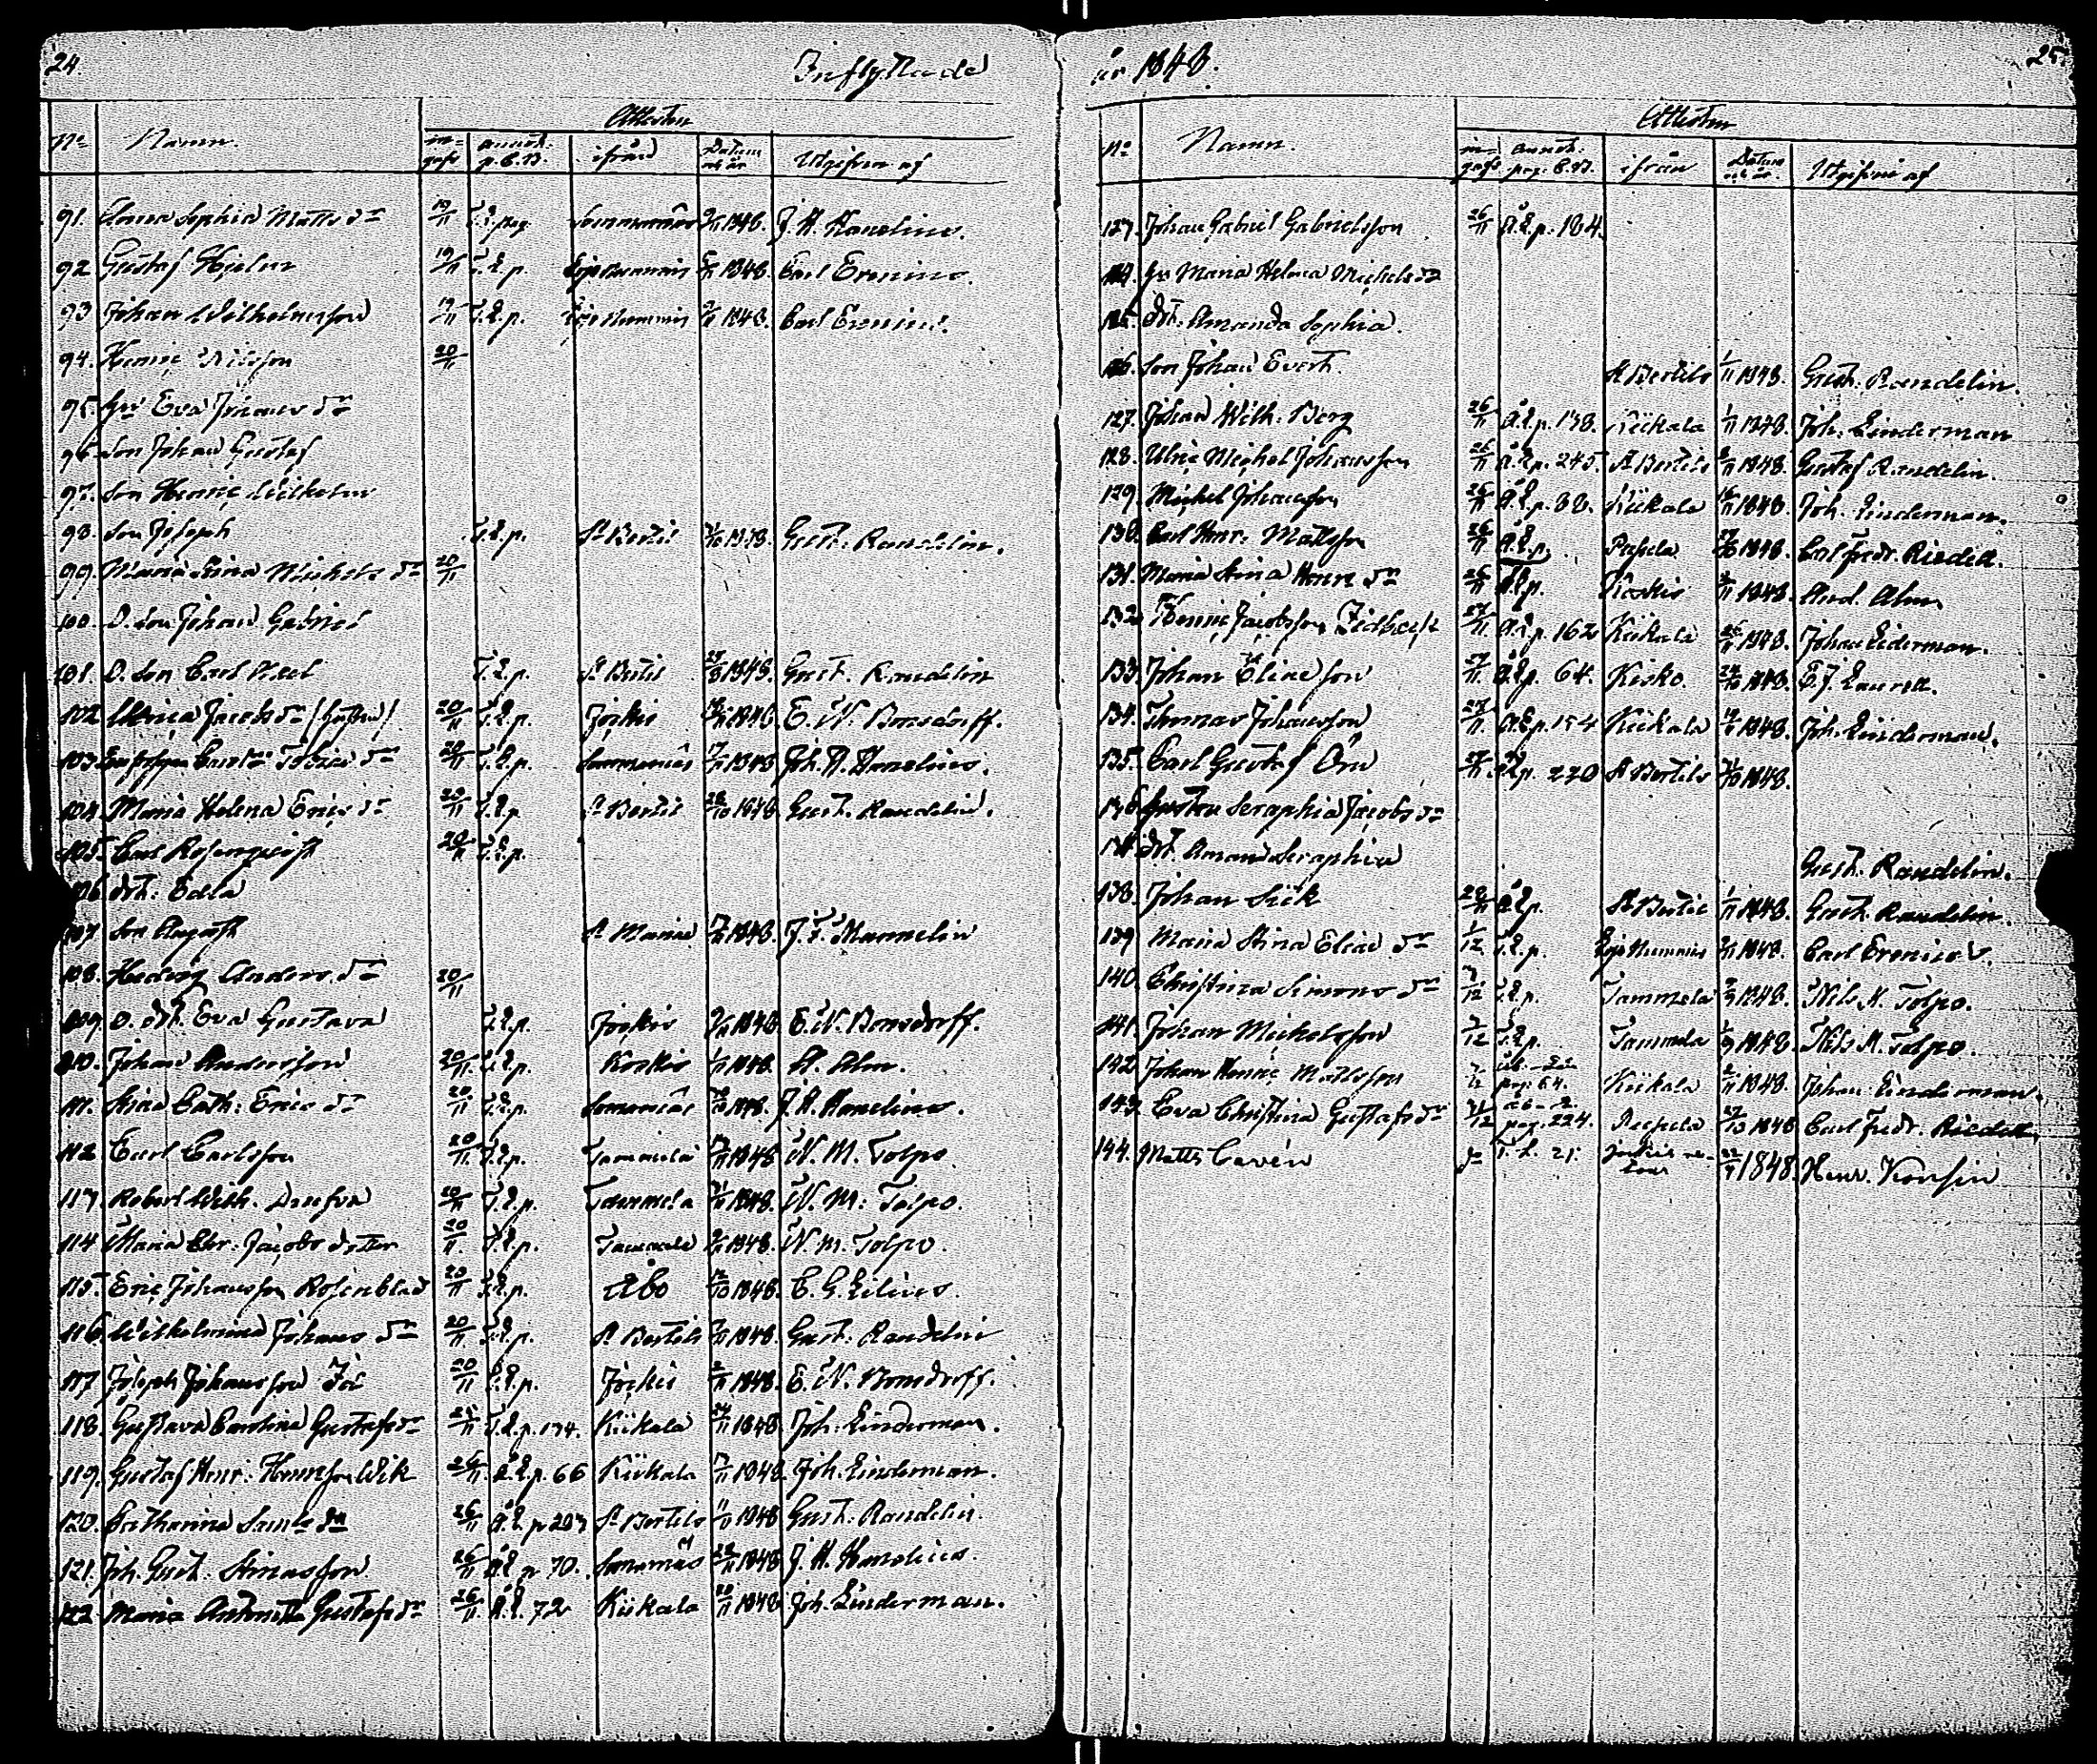 24. Inflyttade
No Namn. Attester
in-gifv. annot. p. C.B. ifrån Datum och år Utgifven af
91. Anna Sophia Matts dr 19/11 T.L. pag. Sommarnäs 1848. J. H. Hanelius.
92 Gustaf Hjelm 19/11 T.L.p. Lojo Nummis 1848. Carl Erenius.
93 Johan Wilhelmsson 19/11 T.L.p. Lojo Nummis 1848. Carl Erenius.
94. Henric Nilsson 20/11
95. Hu Eva Johans dr
96 Son Johan Gustaf
97. Son Henric Wilhelm
98. Son Joseph T.L.p. St Bertil 1848. Gust. Randelin.
99. Maria Stina Michels dr 20/11
100. O. Son Johan Gabriel
101. O. Son Carl Axel T.L.p. St Bertil 1848. Gust. Randelin
102 Ulrica Jacobs dr 20/11 T.L.p. Jockis 1848 E. W. Bonsdorff.
103 Carol. Tobias dr 20/11 T.L.p. Sommarnäs 1848 Joh. H. Hanelius.
104. Maria Helena Erics dr 20/11 T.L.p St Bertil 28/10 1848 Gust. Randelin.
105 Carl Rosenqvist 20/11 T.L.p.
106 dr: Edla
107 Son August St Marie 1848. J. F. Mannelin
108. Hedvig Anders dr 20/11
109. O. dr. Eva Gustava T.L.p. Jockis 1848 E. W. Bonsdorff.
110. Johan Andersson 20/11 T.L.p. Koskis 1/11 1848 A. Alm.
111. Stina Cath: Erics dr 20/11 T.L.p. Somernäs 1848. J. H. Hanelius.
112 Carl Carlsson 20/11 T.L.p. Tammela 1848 N. M. Tolpo
113. Robert Wilh. Drufva 20/11 T.L.p. Tammela 1848. N. M. Tolpo.
114 Maria Chr. Jacobs dotter 20/11 T.L.p. Tammela 1848. N. M. Tolpo.
115. Eric Johansson Rosenblad 20/11 T.L.p. Åbo 1848. C. G. Lilius.
116 Wilhelmina Johans dr 20/11 T.L.p. St Bertils 1848. Gust. Randelin
117 Joseph Johansson 20/11 T.L.p. Jockis 1848. E. W. Bonsdorff.
118. Gustava Carolina Gustafsdr 25/11 T.L.p. 174. Kiikala 24/11 1848. Joh. Linderman.
119. Gustaf Henr. Henrsson Wik 26/11 Å.L.p. 66 Kiikala 1848. Joh. Linderman.
120. Catharina Saml dr 26/11 Å.L. p 203 St Bertils 11/11 1848 Gust. Randelin.
121. Joh. Gust. Stinasson 26/11 Å.L. p 70. Somernäs 22/11 1848 J. H. Hanelius.
122 Maria Antonetta Gustafs dr 26/11. Å.L. 72 Kiikala 20/11 1848 Joh. Linderman.
år 1848. 25.
No Namn. Attester
in-gifv. annot: pag. C.B. ifrån Datum och år. Utgifven af
123. Johan Gabriel Gabrielsson 26/11 Å.L.p. 184.
124. Hu Maria Helena Michels dr
125. dr. Amanda Sophia.
126. Son Johan Evert. St Bertils 1/11 1848. Gust. Randelin.
127. Johan Wilh. Berg 26/11 Å.L.p. 138. Kiikala 1/11 1848. Joh. Linderman
128. Ulric Michel Johansson 26/11 Å.L.p. 245. St Bertils 1848. Gustaf Randelin.
129. Michel Johansson 26/11 Å.L.p. 38. Kiikala 1848. Joh. Linderman.
130. Carl Henr. Mattsson 26/11 Å.L.p. Pusula 1848. Carl Fredr. Riedell.
131. Maria Stina Henr dr 26/11 Å.L.p. Koskis 1848. And. Alm
132. Henric Jacobsson 27/11. Å.L.p. 162 Kiikala 1848. Johan Linderman.
133. Johan Eliasson 27/11. Å.L.p. 64. Kisko. 1848. E. J. Laurell.
134. Thomas Johansson 27/11. Å.L.p. 154 Kiikala 1848. Joh. Linderman.
135. Carl Gustaf Örn 27/11. Å.L.p. 220 St Bertils 1848.
136 Hustru Seraphia Jacobs dr
137 dr. Amanda Seraphia Gust. Randelin.
138. Johan Sick 28/11 Å.L.p. St Bertil 1/11 1848. Gust. Randelin.
139 Maria Stina Elias dr 1/12 T.L.p. Lojo Nummis 1848. Carl Erenius.
140. Christina Simons dr 12 T.L.p. Tammela 1848. Nils M. Tolpo.
141. Johan Michelsson 12 T.L.p. Tammela 1848. Nils M. Tolpo.
142 Johan Henric Mattsson pag. 64. Kiikala 1848. Johan Linderman.
143. Eva Christina Gustafs dr 12 pag. 224. Pusula 1848 Carl Fredr. Riedell.
144. Matts Cavén T. L. 21. 1848. Henr. Konsin